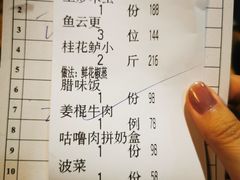 1 份 188
鱼云更
3 位 144
桂花鲈小
2 斤 216
做法：鲜花椒蒸
腊味饭
1 份 98
姜棍牛肉
1 例 78
咕噜肉拼奶盒
1 份 98
菠菜
1 份 58